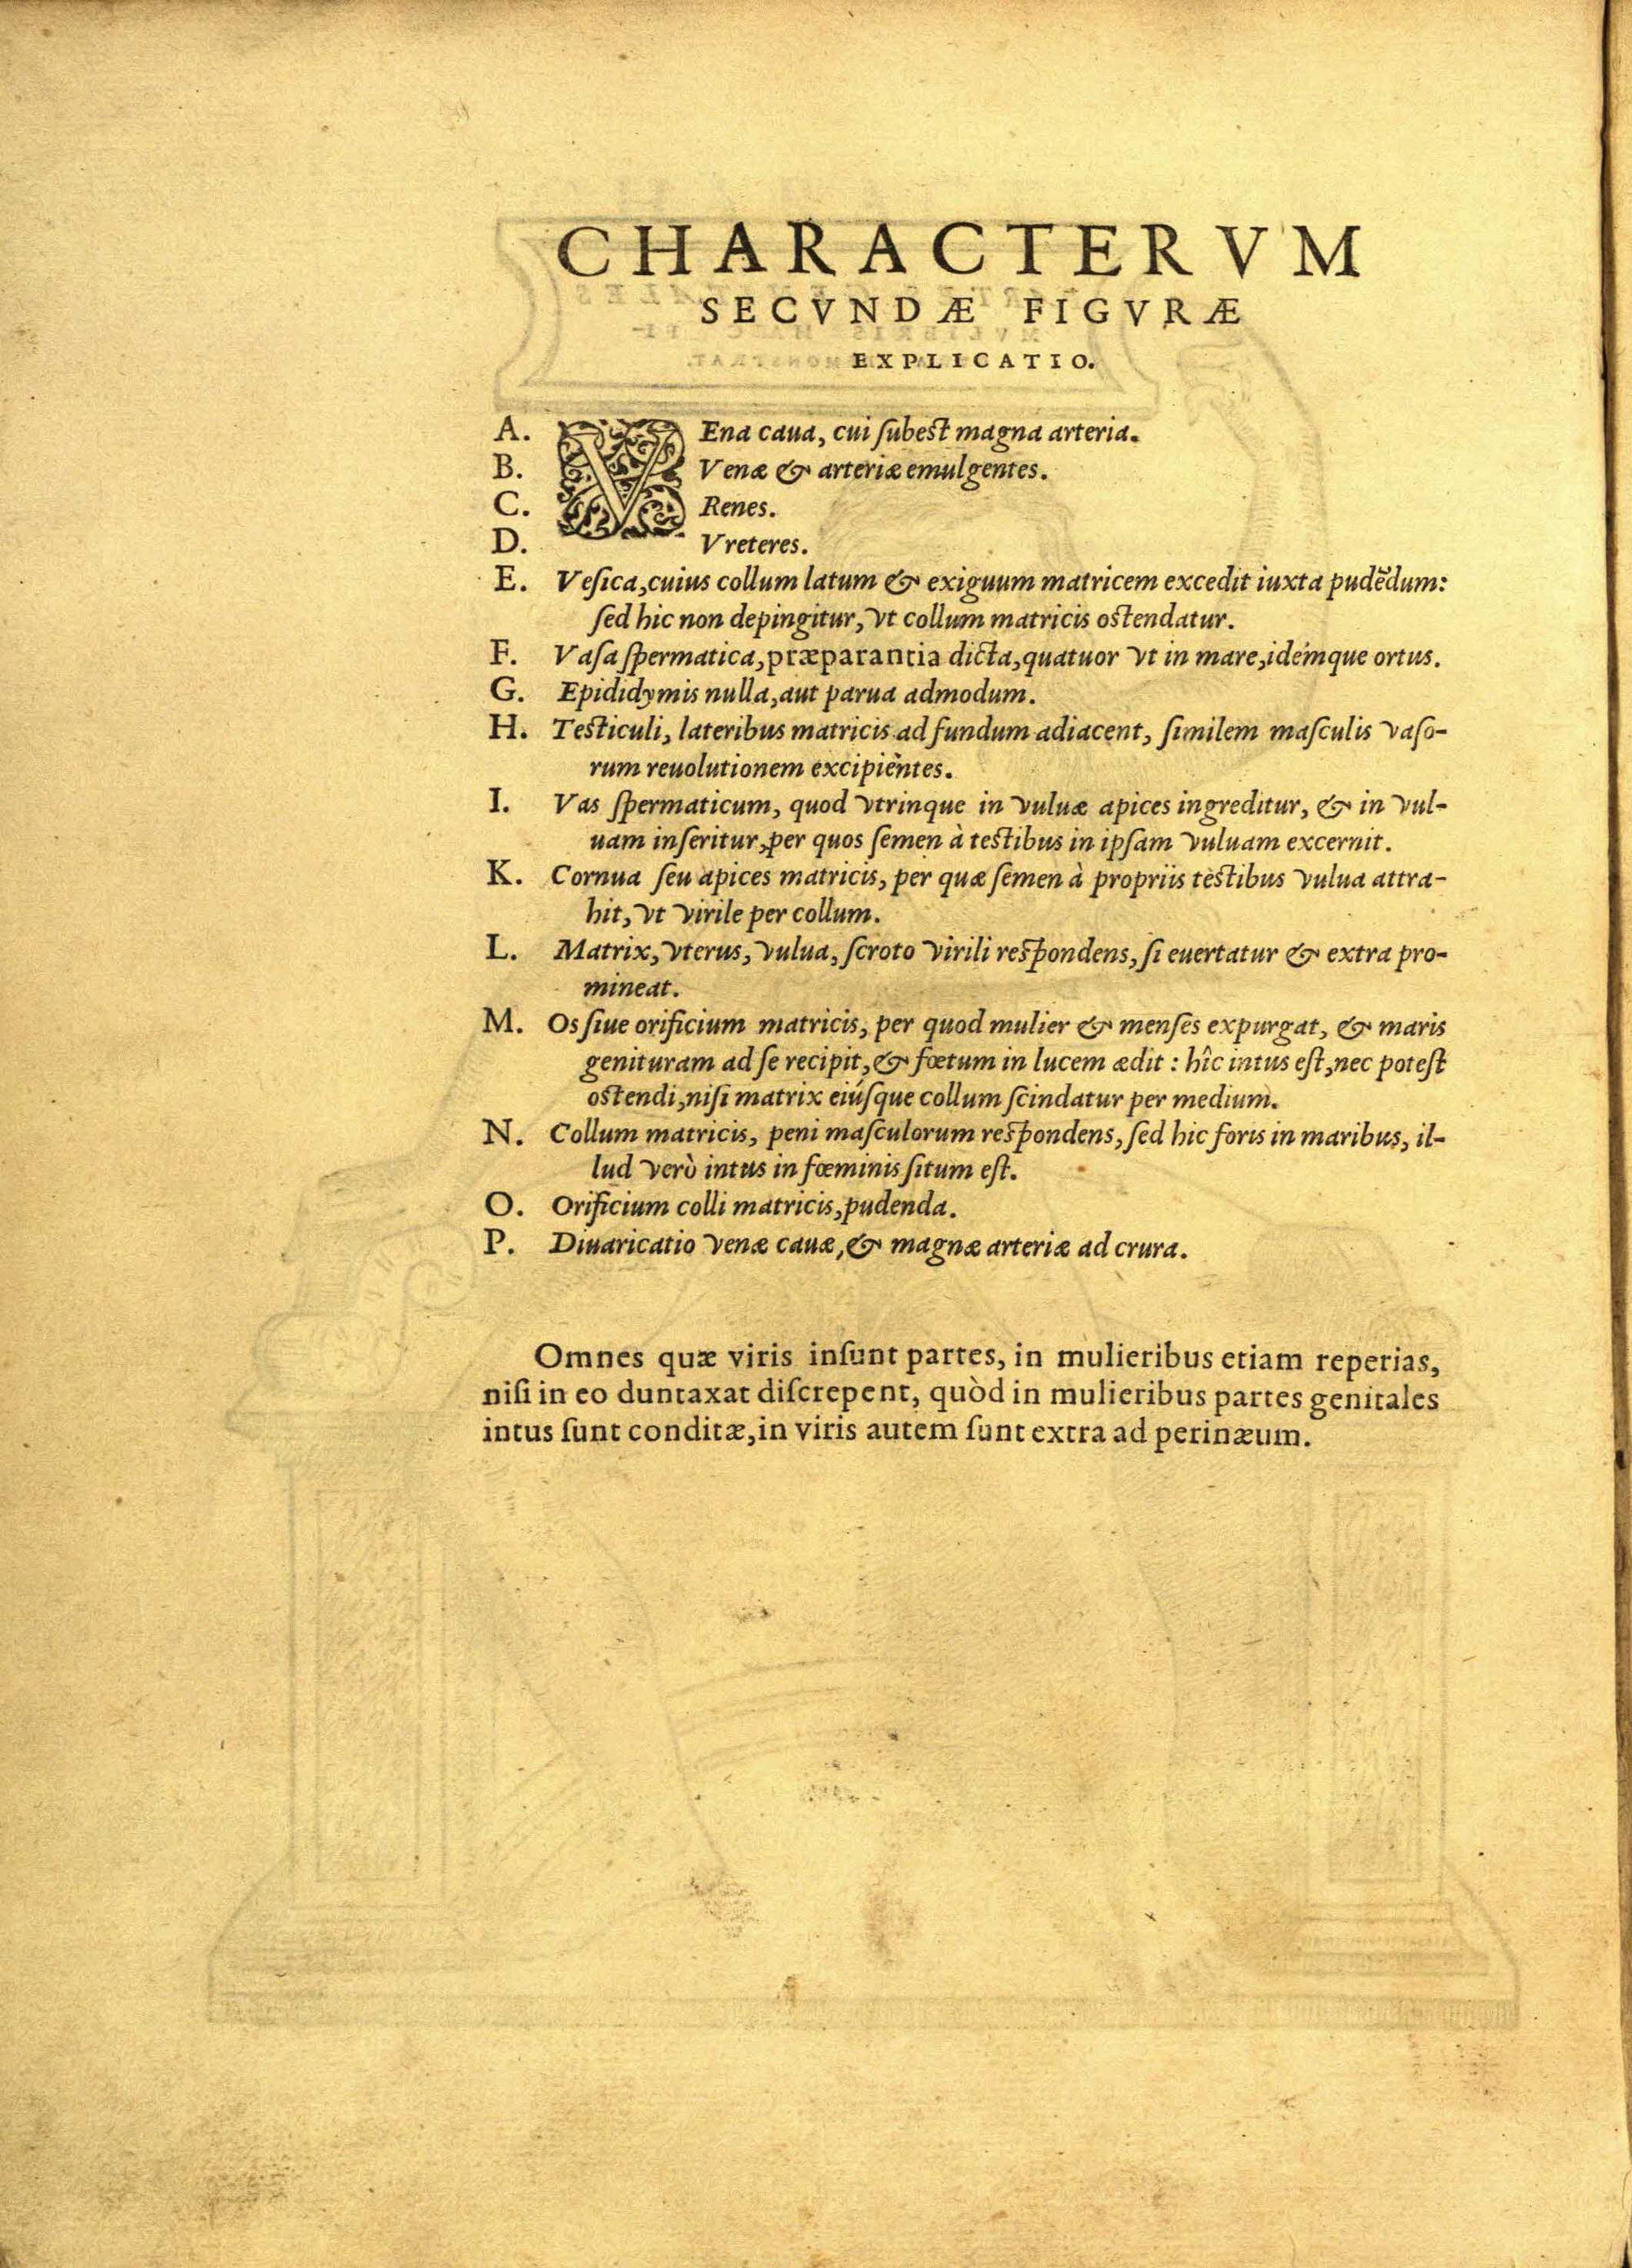 CHARACTERVM
SECVNDÆ FIGVRÆ
EXPLICATIO.
A. VEna caua, cui ſubeſt magna arteria.
B. Venæ & arteriæ emulgentes.
C. Renes.
D. Vreteres.
E. Veſica, cuius collum latum & exiguum matricem excedit iuxta pudẽdum:
ſed hic non depingitur, vt collum matricis oſtendatur.
F. Vaſa ſpermatica, præparantia dicta, quatuor vt in mare, idémque ortus.
G. Epididymis nulla, aut parua admodum.
H. Teſticuli, lateribus matricis ad fundum adiacent, ſimilem maſculis vaſo-
rum reuolutionem excipientes.
I. Vas ſpermaticum, quod vtrinque in vuluæ apices ingreditur, & in vul-
uam inſeritur, per quos ſemen à teſtibus in ipſam vuluam excernit.
K. Cornua ſeu apices matricis, per quæ ſemen à propriis teſtibus vulua attra-
hit, vt virile per collum.
L. Matrix, vterus, vulua, ſcroto virili reſpondens, ſi euertatur & extra pro-
mineat.
M. Os ſiue orificium matricis, per quod mulier & menſes expurgat, & maris
genituram ad ſe recipit, & fœtum in lucem ædit : hîc intus eſt, nec poteſt
oſtendi, niſi matrix eiúſque collum ſcindatur per medium.
N. Collum matricis, peni maſculorum reſpondens, ſed hic foris in maribus, il-
lud verò intus in fœminis ſitum eſt.
O. Orificium colli matricis, pudenda.
P. Diuaricatio venæ cauæ, & magnæ arteriæ ad crura.
Omnes quæ viris inſunt partes, in mulieribus etiam reperias,
niſi in eo duntaxat diſcrepent, quòd in mulieribus partes genitales
intus ſunt conditæ, in viris autem ſunt extra ad perinæum.